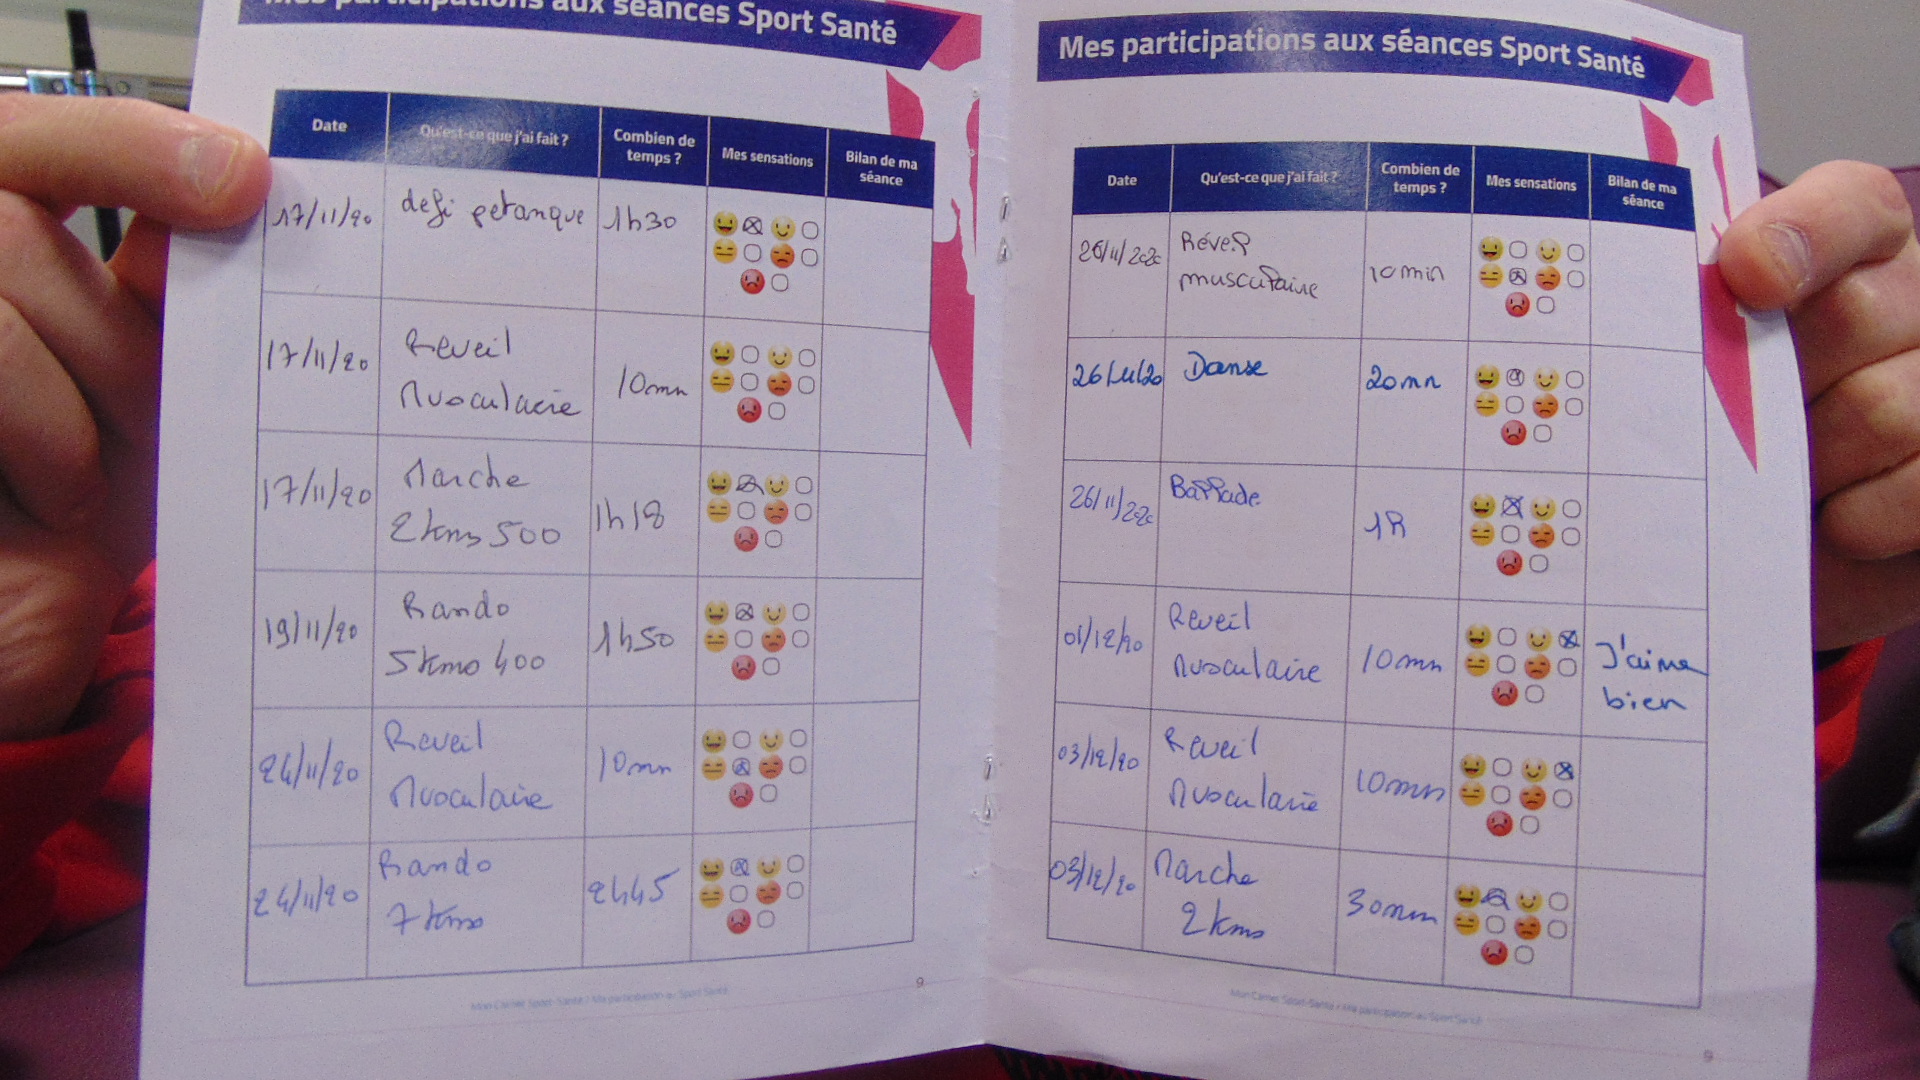 Mes participations aux séances Sport Santé
Date Qu'est-ce que j'ai fait ? Combien de temps ? Mes sensations Bilan de ma séance
17/11/20 defi petanque 1h30
17/11/20 Reveil Musculaire 10mn
17/11/20 Marche 2kms 500 1h18
19/11/20 Rando 5kms 400 1h50
24/11/20 Reveil Musculaire 10mn
24/11/20 Rando 7kms 2h45
Mon Carnet Sport-Santé / Ma participation au Sport Santé
9
Mes participations aux séances Sport Santé
Date Qu'est-ce que j'ai fait ? Combien de temps ? Mes sensations Bilan de ma séance
26/11/2020 Réveil musculaire 10min
26/11/20 Danse 20mn
26/11/2020 Ballade 1h
01/12/20 Reveil Musculaire 10mn J'aime bien
03/12/20 Reveil Musculaire 10mn
03/12/20 Marche 2kms 30mn
Mon Carnet Sport-Santé / Ma participation au Sport Santé
9